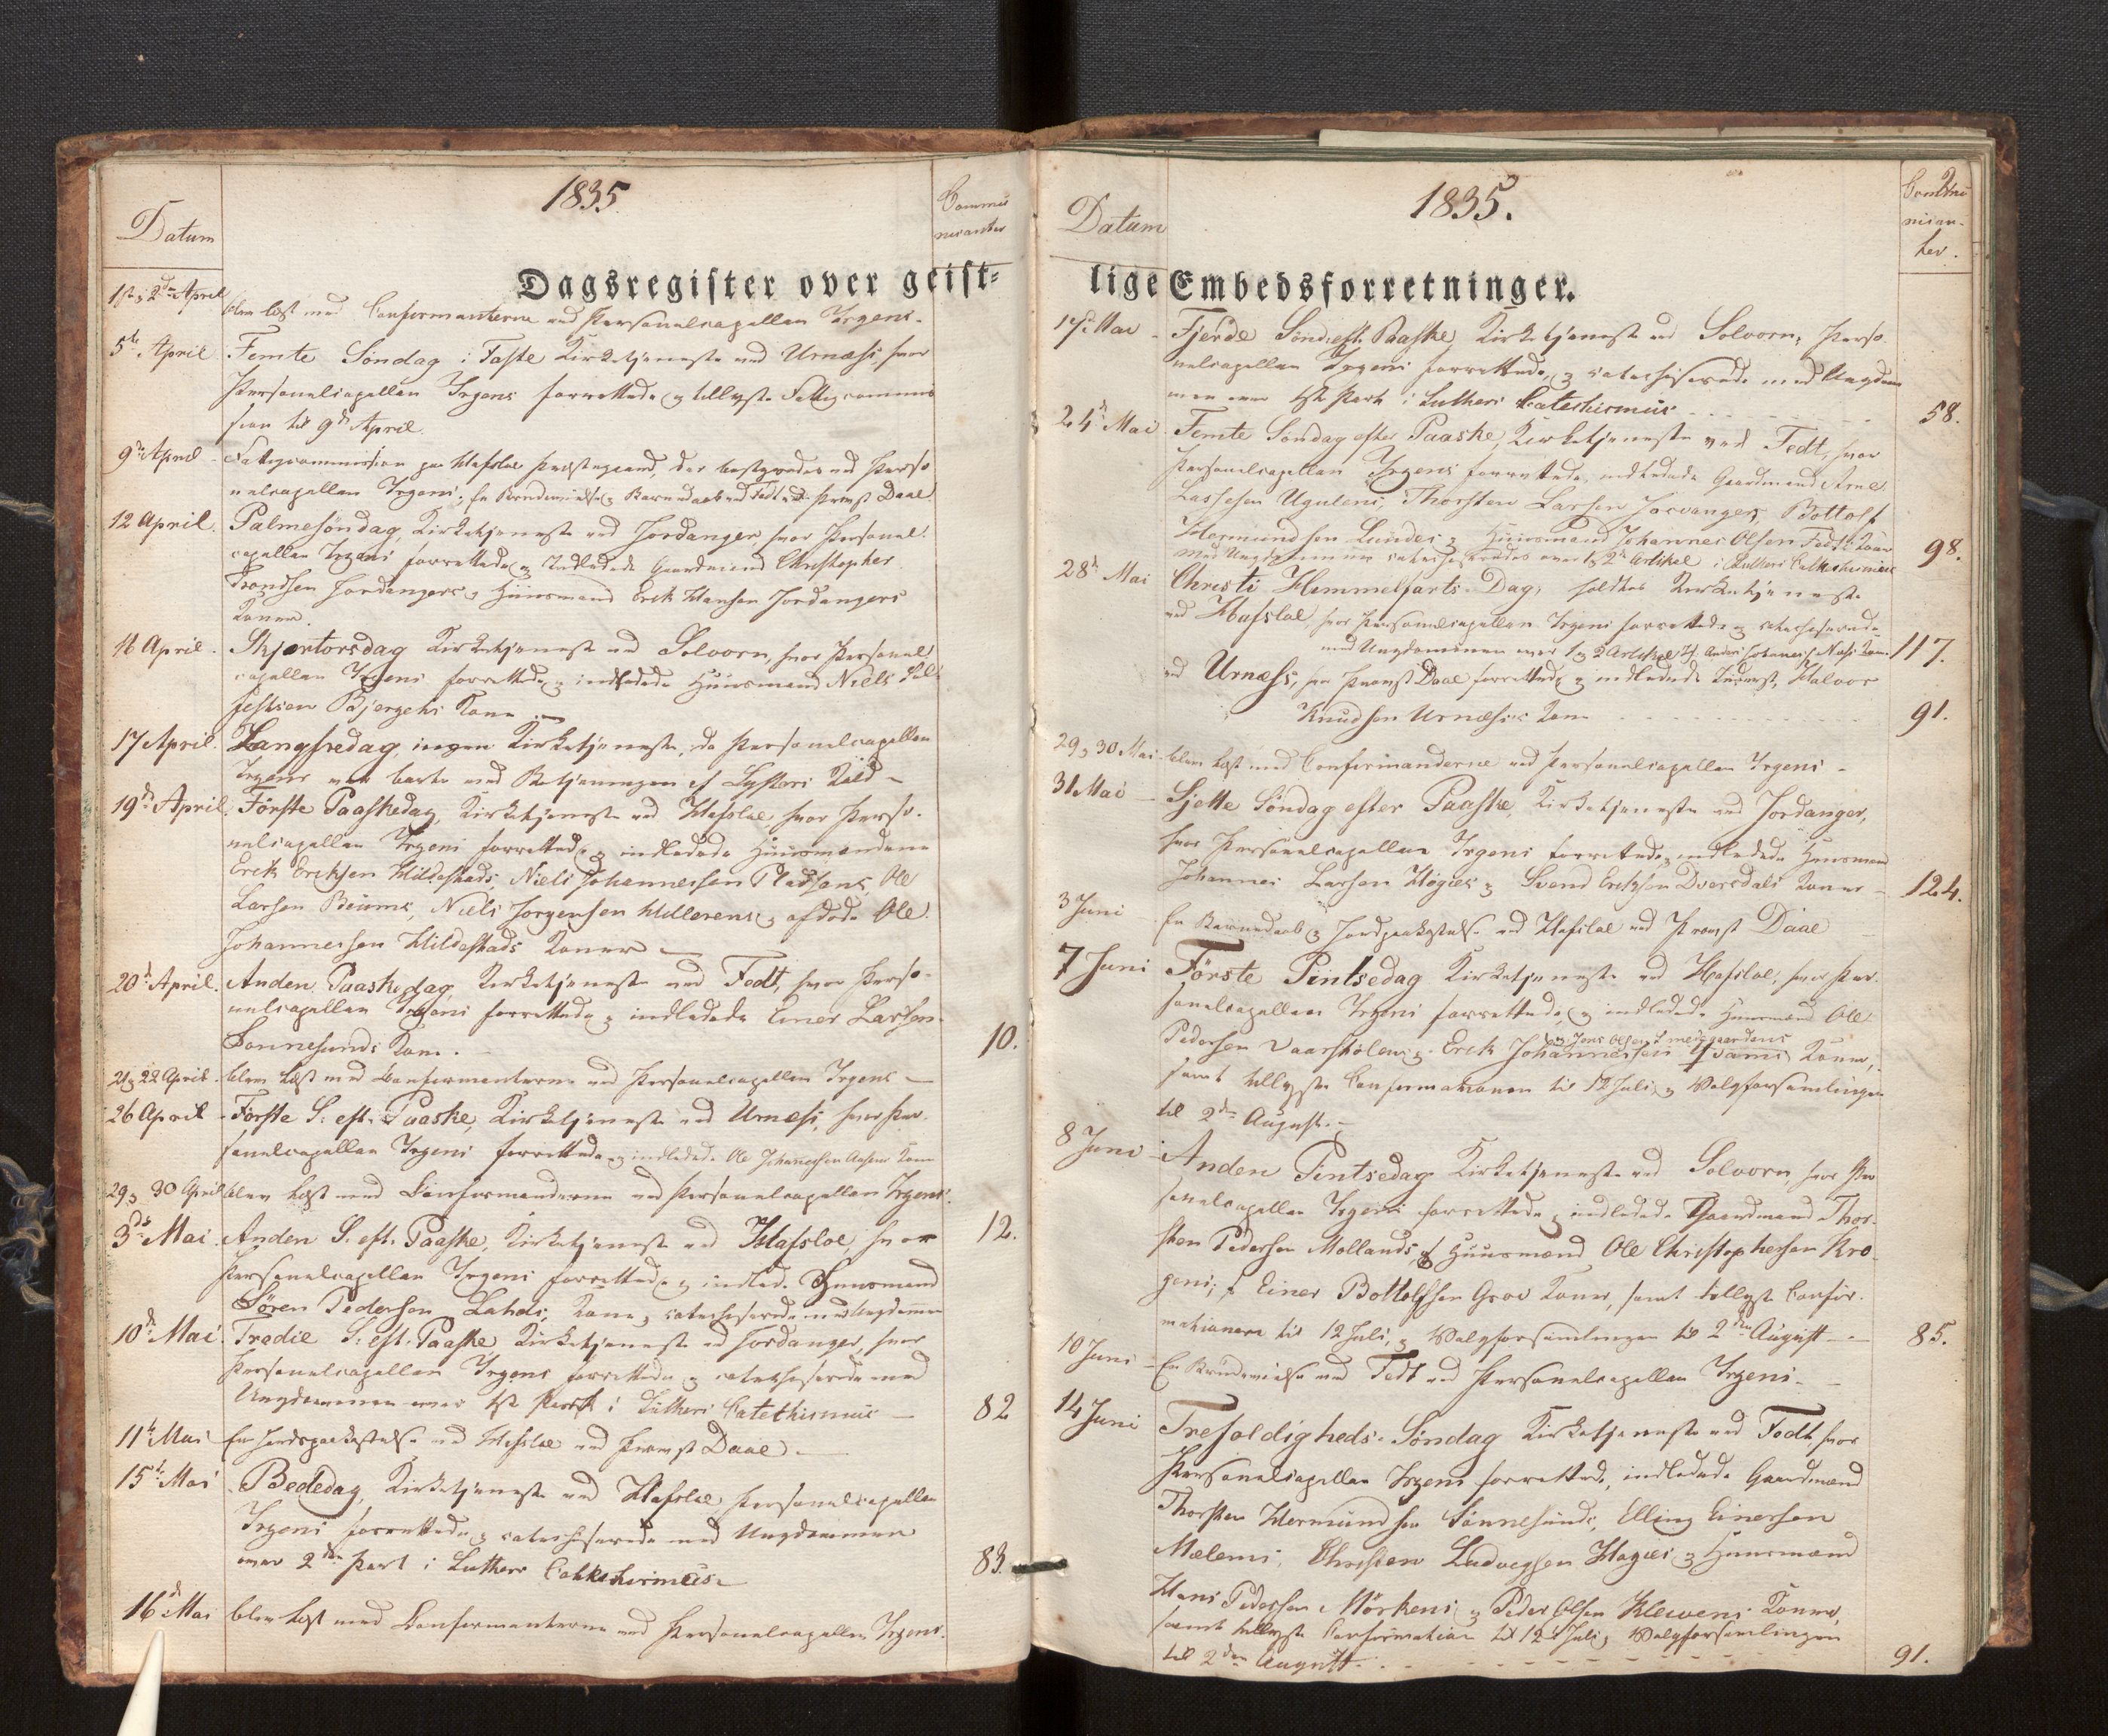 1835
Datum
Commu
nicanter
Dagsregister over geist=
1ste, 2den April blev læst med Confirmanterne ved Personelcapellan Irgens.
5te April Femte Søndag i Faste Kirketjeneste ved Urnæss, hvor
Personelcapellan Irgens forrettede og tillyste Fattigcommis
sion til 9de April.
9de April Fattigcommission paa Hafsloe Præstegaard, der bestyredes ved Perso
nelcapellan Irgens; En Brudevielse og Barnedaab ved Fedt ved Provst Daae.
12 April. Palmesøndag, Kirketjeneste ved Jordanger, hvor Personel
capellan Irgens forrettede og Indledede Gaardmand Christopher
Trondsen Jordangers og Huusmand Erik Hansen Jordangers
Koner.
16 April. Skjærtorsdag Kirketjeneste ved Solvorn, hvor Personel
capellan Irgens forrettede og indledede Huusmand Niels
Bjergets Kone.
17 April. Langfredag, ingen Kirketjeneste, da Personelcapellan
Irgens var borte ved Betjeningen af Lysters Kald
19de April. Første Paaskedag, Kirketjeneste ved Hafsloe, hvor Perso-
nelcapellan Irgens forrettede og indledede Huusmændene
Erik Eriksen Hildestads, Niels Johannessen Pladsens, Ole
Larsen Beums, Niels Jørgensen Hillerens og afdøde Ole
Johannessen Hildestads Koner
20de April. Anden Paaskedag, Kirketjeneste ved Fedt, hvor Perso-
nelcapellan Irgens forrettede og indledede Einer Larsen
Sønnesunds Kone. 10.
21, 22 April. blev læst med Confirmanterne ved Personelcapellan Irgens
26 April Første S. eft. Paaske, Kirketjeneste ved Urnæss, hvor Per-
sonelcapellan Irgens forrettede og indledede Ole Johannessen Kone
29, 30 April blev læst med Confirmanderne ved Personelcapellan Irgens.
3de Mai. Anden S. eft. Paaske, Kirketjeneste ved Hafsloe, hvor 12.
Personelcapellan Irgens forrettede og indled. Huusmand
Søren Pedersen Lahols Kone, catechiserede med Ungdommen
10de Mai. Tredie S. eft. Paaske, Kirketjeneste ved Jordanger, hvor
Personelcapellan Irgens forrettede og catechiserede med
Ungdommen over 1ste Part i Lutheri Catechismus 82
11te Mai En Jordpaakastelse ved Hafsloe ved Provst Daae.
15de Mai Bededag, Kirketjeneste ved Hafsloe, Personelcapellan
Irgens forrettede og catechiserede med Ungdommen
over 2den Part i Luthers Catechismus 83.
16de Mai blev læst med Confirmanterne ved Personelcapellan Irgens.
1835.
Datum
Commu
nican-
ter.
lige Embedsforretninger.
17de Mai Fjerde Sønd. eft. Paaske, Kirketjeneste ved Solvorn, Perso-
nelcapellan Irgens forrettede og catechiserede med Ungdom
men over 1ste Part i Lutheri Catechismus 58.
24de Mai Femte Søndag efter Paaske, Kirketjeneste ved Fedt, hvor
Personelcapellan Irgens forrettede, indledede Gaardmænd Arne
Lassesen Ugulens, Thorsten Larsen Joranger, Bottolf
Hermundsen Lundes og Huusmand Johannes Olsen Fedts Koner
Med Ungdommen catechiseredes over 1, 2 Artikel i Lutheri Catechismus 98.
28de Mai Christi Himmelfarts Dag, holdtes Kirketjeneste
ved Hafsloe, hvor Personelcapellan Irgens forrettede og catechiserede
med Ungdommen over 1 og 2 Artikel 117.
ved Urnæss, hvor Provst Daae forrettede og indledede Halvor
Knudsen Urnæss's Kone 91.
29, 30 Mai blev læst med Confirmanderne ved Personelcapellan Irgens
31 Mai Sjette Søndag efter Paaske, Kirketjeneste ved Jordanger,
hvor Personelcapellan Irgens forrettede, indledede Huusmænd
Johannes Larsen Høgies og Svend Eriksen Dvergsdals Koner 124.
3 Juni En Barnedaab og Jordpaakastelse ved Hafsloe ved Provst Daae
7 Juni Første Pintsedag Kirketjeneste ved Hafsloe, hvor Per-
sonelcapellan Irgens forrettede, og indledede Huusmænd Ole
og Jens Olsen
Pedersen Vaarstølens, Erik Johannessen Qvams Koner,
samt tillyste Confirmationen til 12 Juli og Valgforsamlingen
til 2den August.
8 Juni Anden Pintsedag Kirketjeneste ved Solvorn, hvor Per
sonelcapellan Irgens forrettede og indledede Gaardmand Thor-
sten Pedersen Mollands, Huusmænd Ole Christophersen Kro-
gens, og Einer Bottolfsen Grov Koner, samt tillyste Confir-
mationen til 12 Juli, og Valgforsamlingen til 2den August 85.
10 Juni En Brudevielse ved Fedt ved Personelcapellan Irgens.
14 Juni Trefoldigheds-Søndag Kirketjeneste ved Fedt, hvor
Personelcapellan Irgens forrettede, indledede Gaardmænd
Thorsten Hermundsen Sønnesunds, Elling Einersen
Mælems, Christen Ludvigsen Hagies og Huusmænd
Hans Pedersen Mørkens og Peder Olsen Klewens Koner,
samt tillyste Confirmation til 12te Juli, Valgforsamlingen
til 2den August. 91.